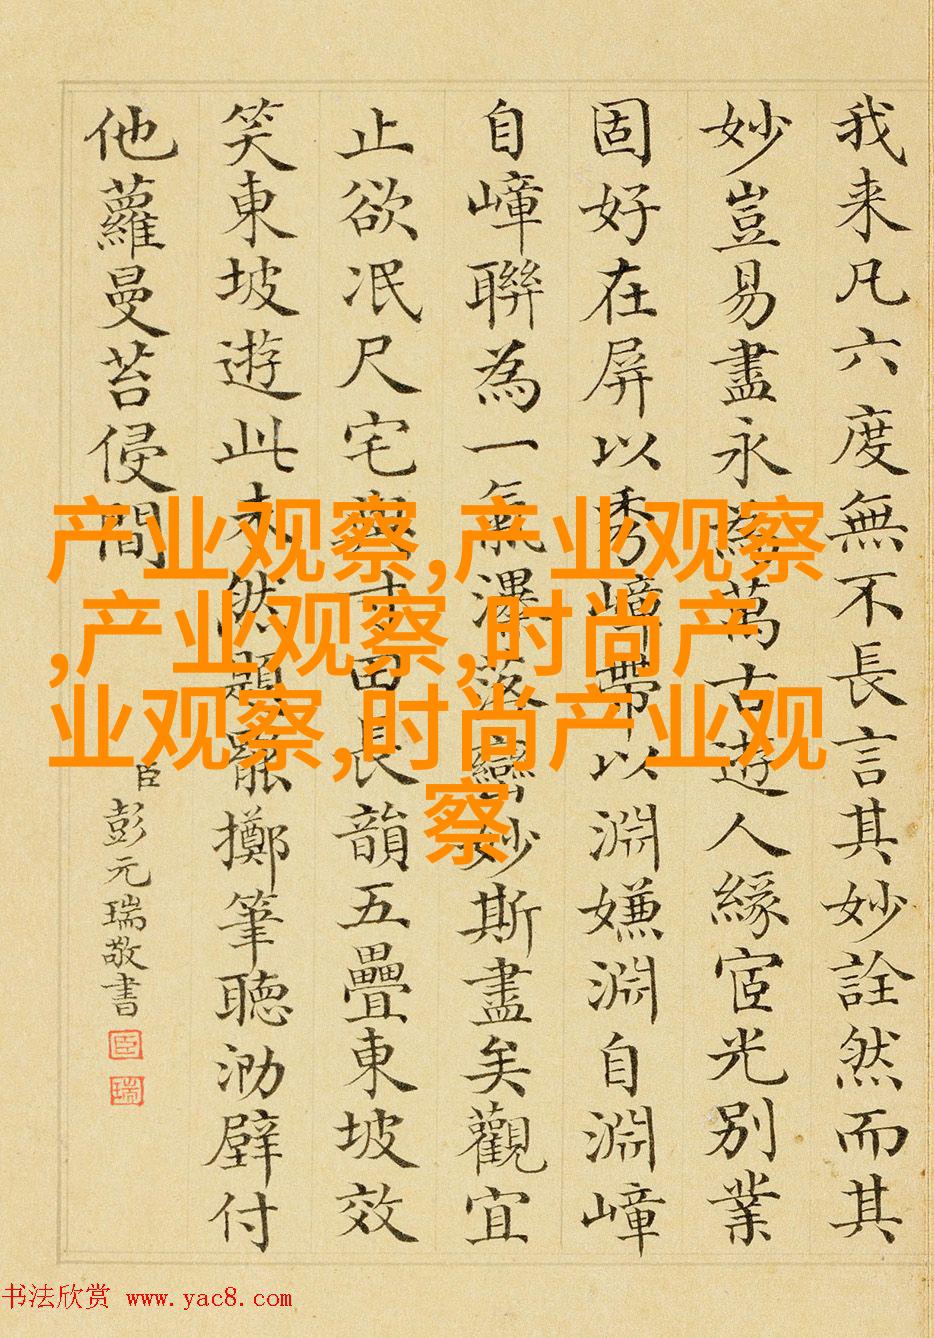 我来凡六度無不長言其妙詮然而其
妙豈易盡永為萬古遊人緣宧光別業
固好在屏以秀嶂帶以淵嫌淵自淵嶂
自嶂聯為一氣澤落妙斯盡矣觀宜
止欲冺尺宅與寸田長韻五疊東坡效
笑東坡遊此未然題罷擲筆聽泐壁付
他蘿曼苔侵間
臣彭元瑞敬書
臣
瑞
产业观察,产业观察
,产业观察,时尚产
业观察,时尚产业观
察
书法欣赏 www.yac8.com